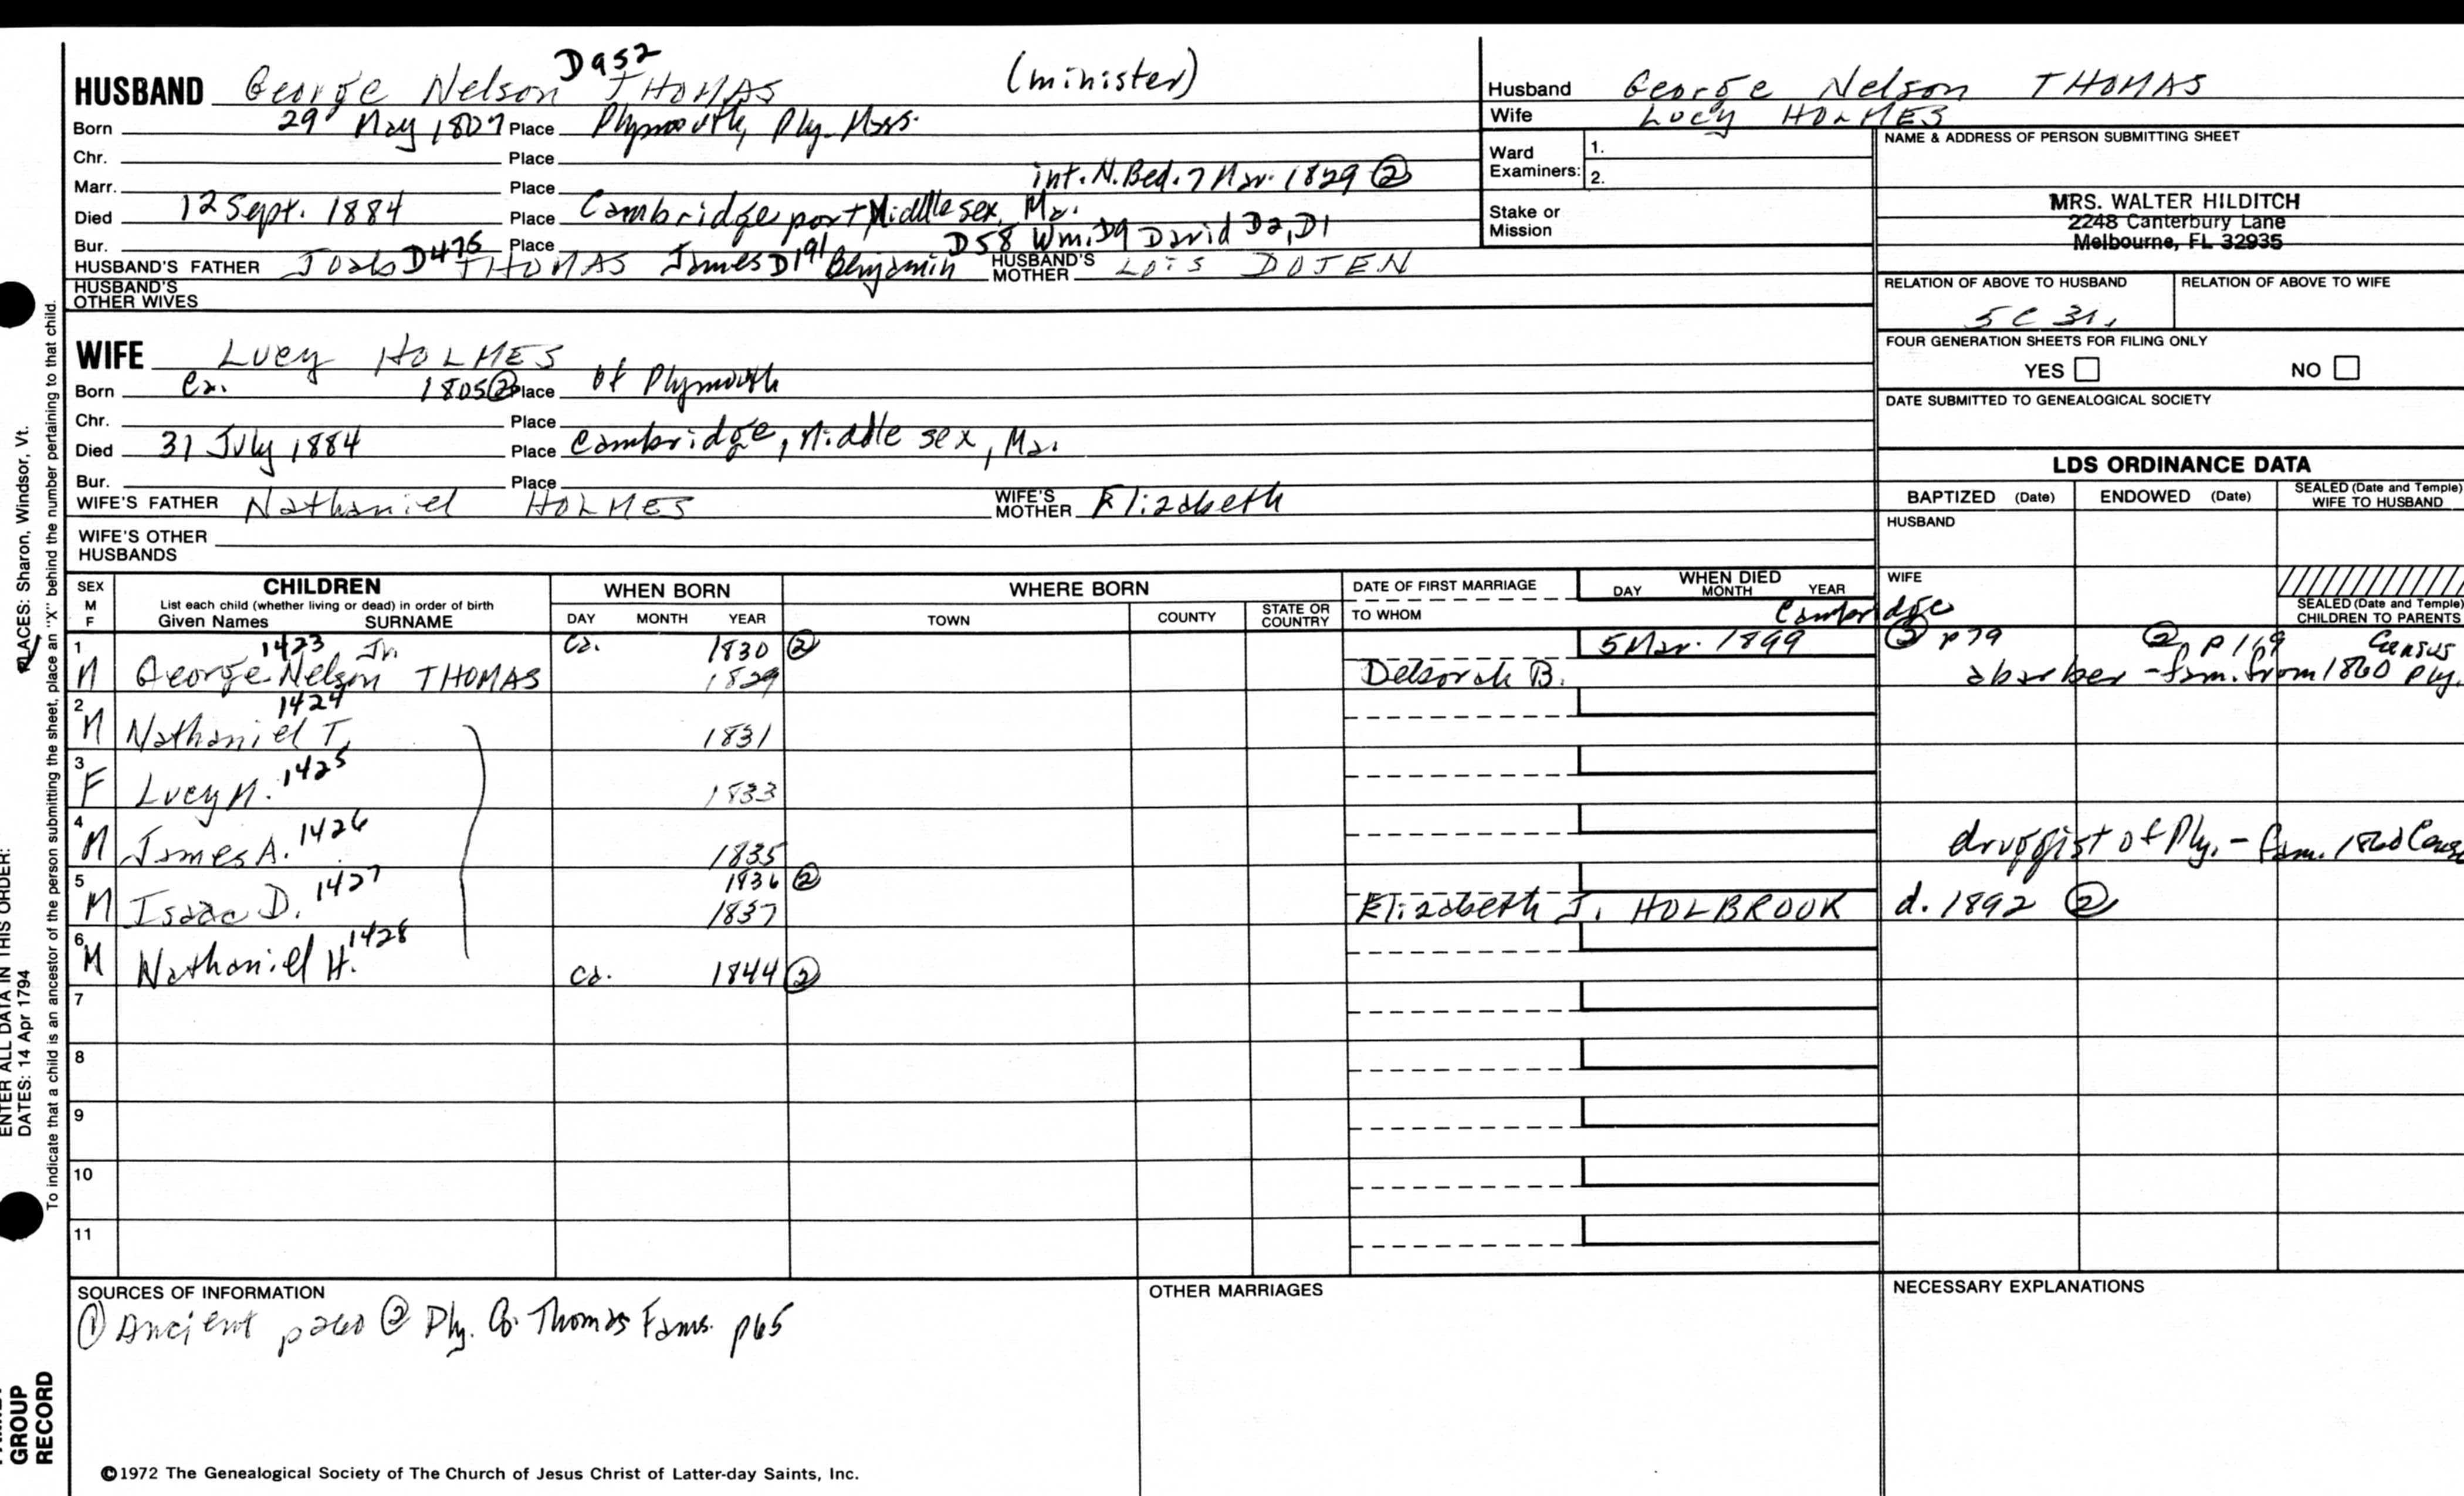 D952
HUSBAND George Nelson THOMAS (minister)
Born 29 May 1807 Place Plymouth, Ply. Mass.
Chr. Place
Marr. Place int. N. Bed. 7 Mar. 1829 ②
Died 12 Sept. 1884 Place Cambridgeport Middlesex, Ma.
Bur. Place
D475 D191 D58 Wm. D9 David D2, D1
HUSBAND'S FATHER Joab THOMAS James Benjamin HUSBAND'S MOTHER Lois DOTEN
HUSBAND'S OTHER WIVES
WIFE Lucy HOLMES
Born Ca. 1805 ② Place of Plymouth
Chr. Place
Died 31 July 1884 Place Cambridge, Middlesex, Ma.
Bur. Place
WIFE'S FATHER Nathaniel HOLMES WIFE'S MOTHER Elizabeth
WIFE'S OTHER HUSBANDS
Husband George Nelson THOMAS
Wife Lucy HOLMES
Ward Examiners: 1.
2.
Stake or Mission
NAME & ADDRESS OF PERSON SUBMITTING SHEET
MRS. WALTER HILDITCH
2248 Canterbury Lane
Melbourne, FL 32935
RELATION OF ABOVE TO HUSBAND RELATION OF ABOVE TO WIFE
5C
FOUR GENERATION SHEETS FOR FILING ONLY
YES NO
DATE SUBMITTED TO GENEALOGICAL SOCIETY
LDS ORDINANCE DATA
BAPTIZED (Date) ENDOWED (Date) SEALED (Date and Temple) WIFE TO HUSBAND
HUSBAND
WIFE
SEALED (Date and Temple) CHILDREN TO PARENTS
SEX M F
CHILDREN
List each child (whether living or dead) in order of birth
Given Names SURNAME
WHEN BORN
DAY MONTH YEAR
WHERE BORN
TOWN COUNTY STATE OR COUNTRY
DATE OF FIRST MARRIAGE
TO WHOM
WHEN DIED
DAY MONTH YEAR
Cambridge
1 1423 Jr. Ca. 1830 ② 5 Mar. 1899 ② p79 ② p119 Census
M George Nelson THOMAS 1829 Deborah B. fam. from 1860 Ply.
2 1424
M Nathaniel T. 1831
3 1425
F Lucy M. 1833
4 1426
M James A. 1835 druggist of Ply. - fam. 1860
5 1427 1836 ②
M Isaac D. 1837 Elizabeth J. HOLBROOK d. 1892 ②
6 1428
M Nathaniel H. Ca. 1844 ②
7
8
9
10
11
SOURCES OF INFORMATION
① Ancient p260 ② Ply. Co. Thomas Fams. p65
OTHER MARRIAGES
NECESSARY EXPLANATIONS
©1972 The Genealogical Society of The Church of Jesus Christ of Latter-day Saints, Inc.
PLACES: Sharon, Windsor, Vt.
ENTER ALL DATA IN THIS ORDER:
DATES: 14 Apr 1794
To indicate that a child is an ancestor of the person submitting the sheet, place an "X" behind the number pertaining to that child.
GROUP
RECORD